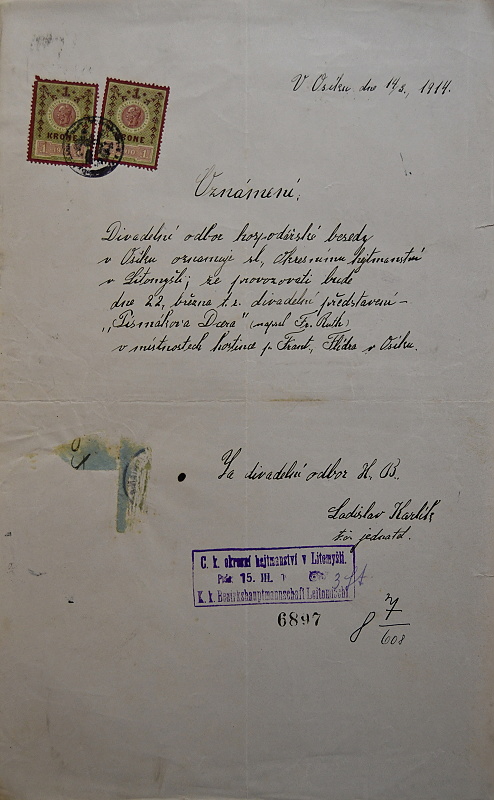 1 1
KRONE KRONE
1 1
V Osíku dne 14/3, 1914.
Oznámení.
Divadelní odbor hospodářské besedy
v Osíku oznamuje sl. okresnímu hejtmanství
v Litomyšli, že provozovati bude
dne 22. března t. r. divadelní představení –
„Písmákova Dcera" (napsal Fr. Ruth)
v místnostech hostince p. Frant. Flídra v Osíku.
Za divadelní odbor H. B.
Ladislav Karlík
t. č. jednatel.
C. k. okresní hejtmanství v Litomyšli.
Präs. 15. III. 1
K. k. Bezirkshauptmannschaft Leitomischl
6897
8 7/608